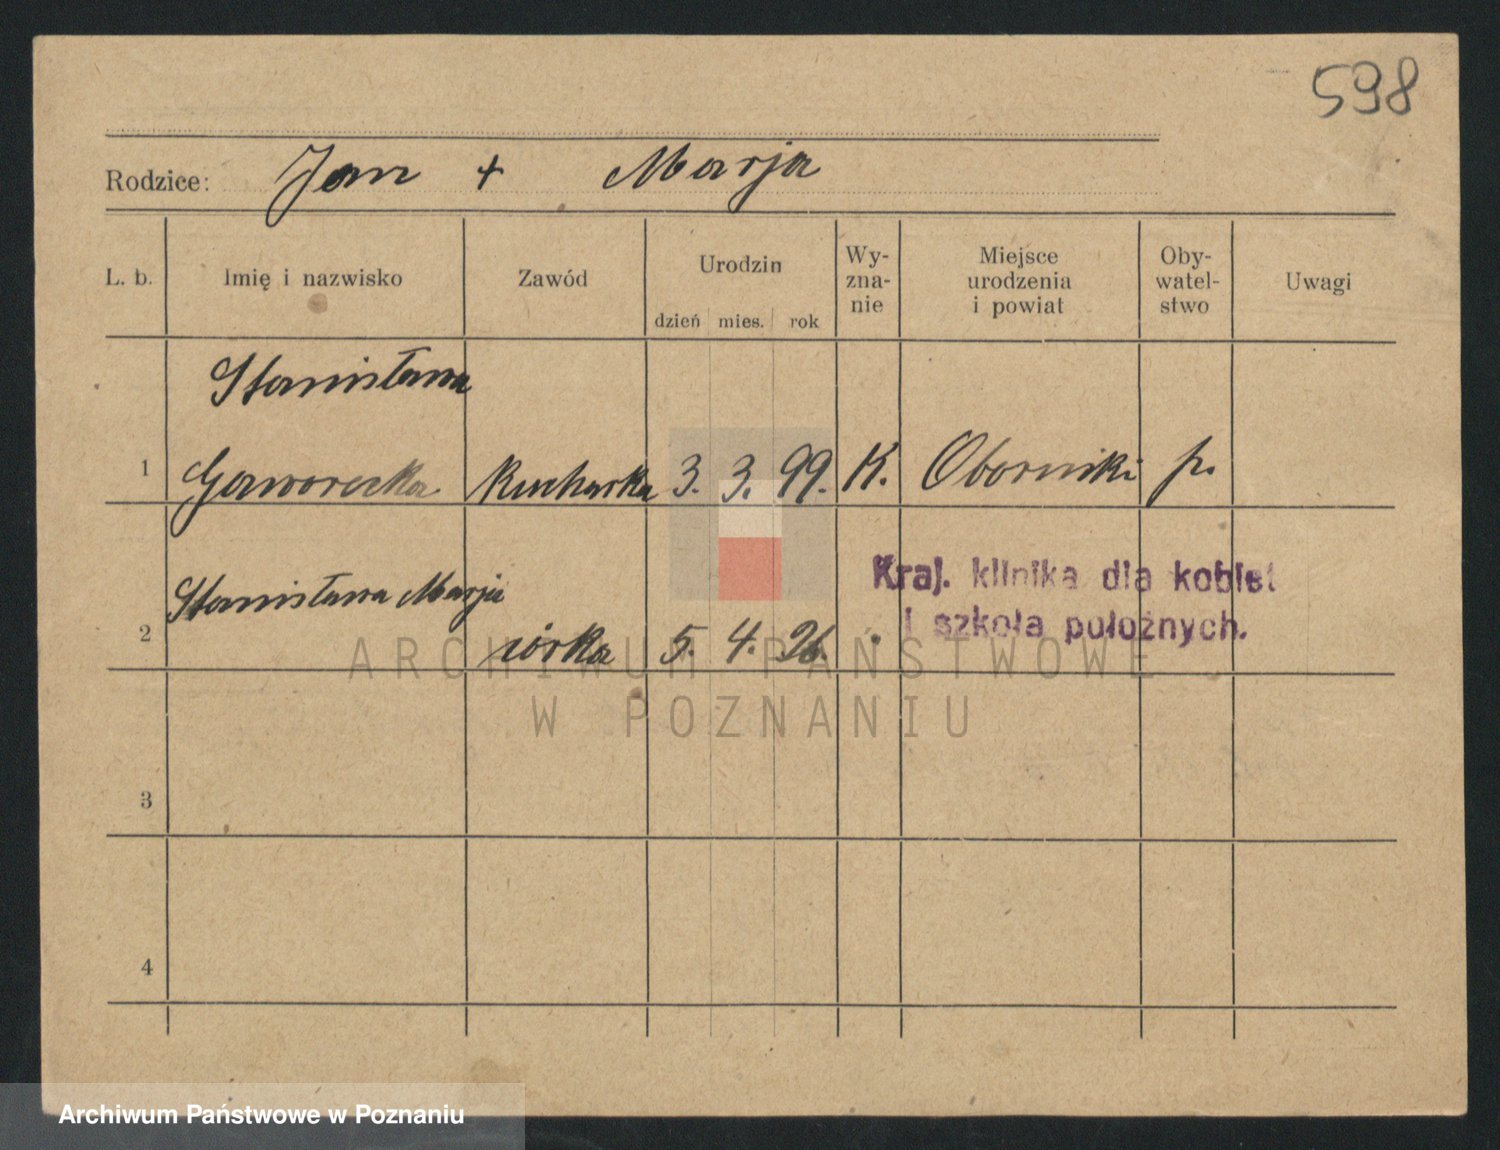 598
Rodzice: Jan + Marja
L. b. Imię i nazwisko Zawód Urodzin dzień mies. rok Wy-zna-nie Miejsce urodzenia i powiat Oby-watel-stwo Uwagi
Stanisława
1 Gaworecka Kucharka 3. 3. 99. K. Oborniki p.
Kraj. klinika dla kobiet
i szkoła położnych.
Stanisława Marja
2 córka 5. 4. 26.
ARCHIWUM PAŃSTWOWE
W POZNANIU
3
4
Archiwum Państwowe w Poznaniu